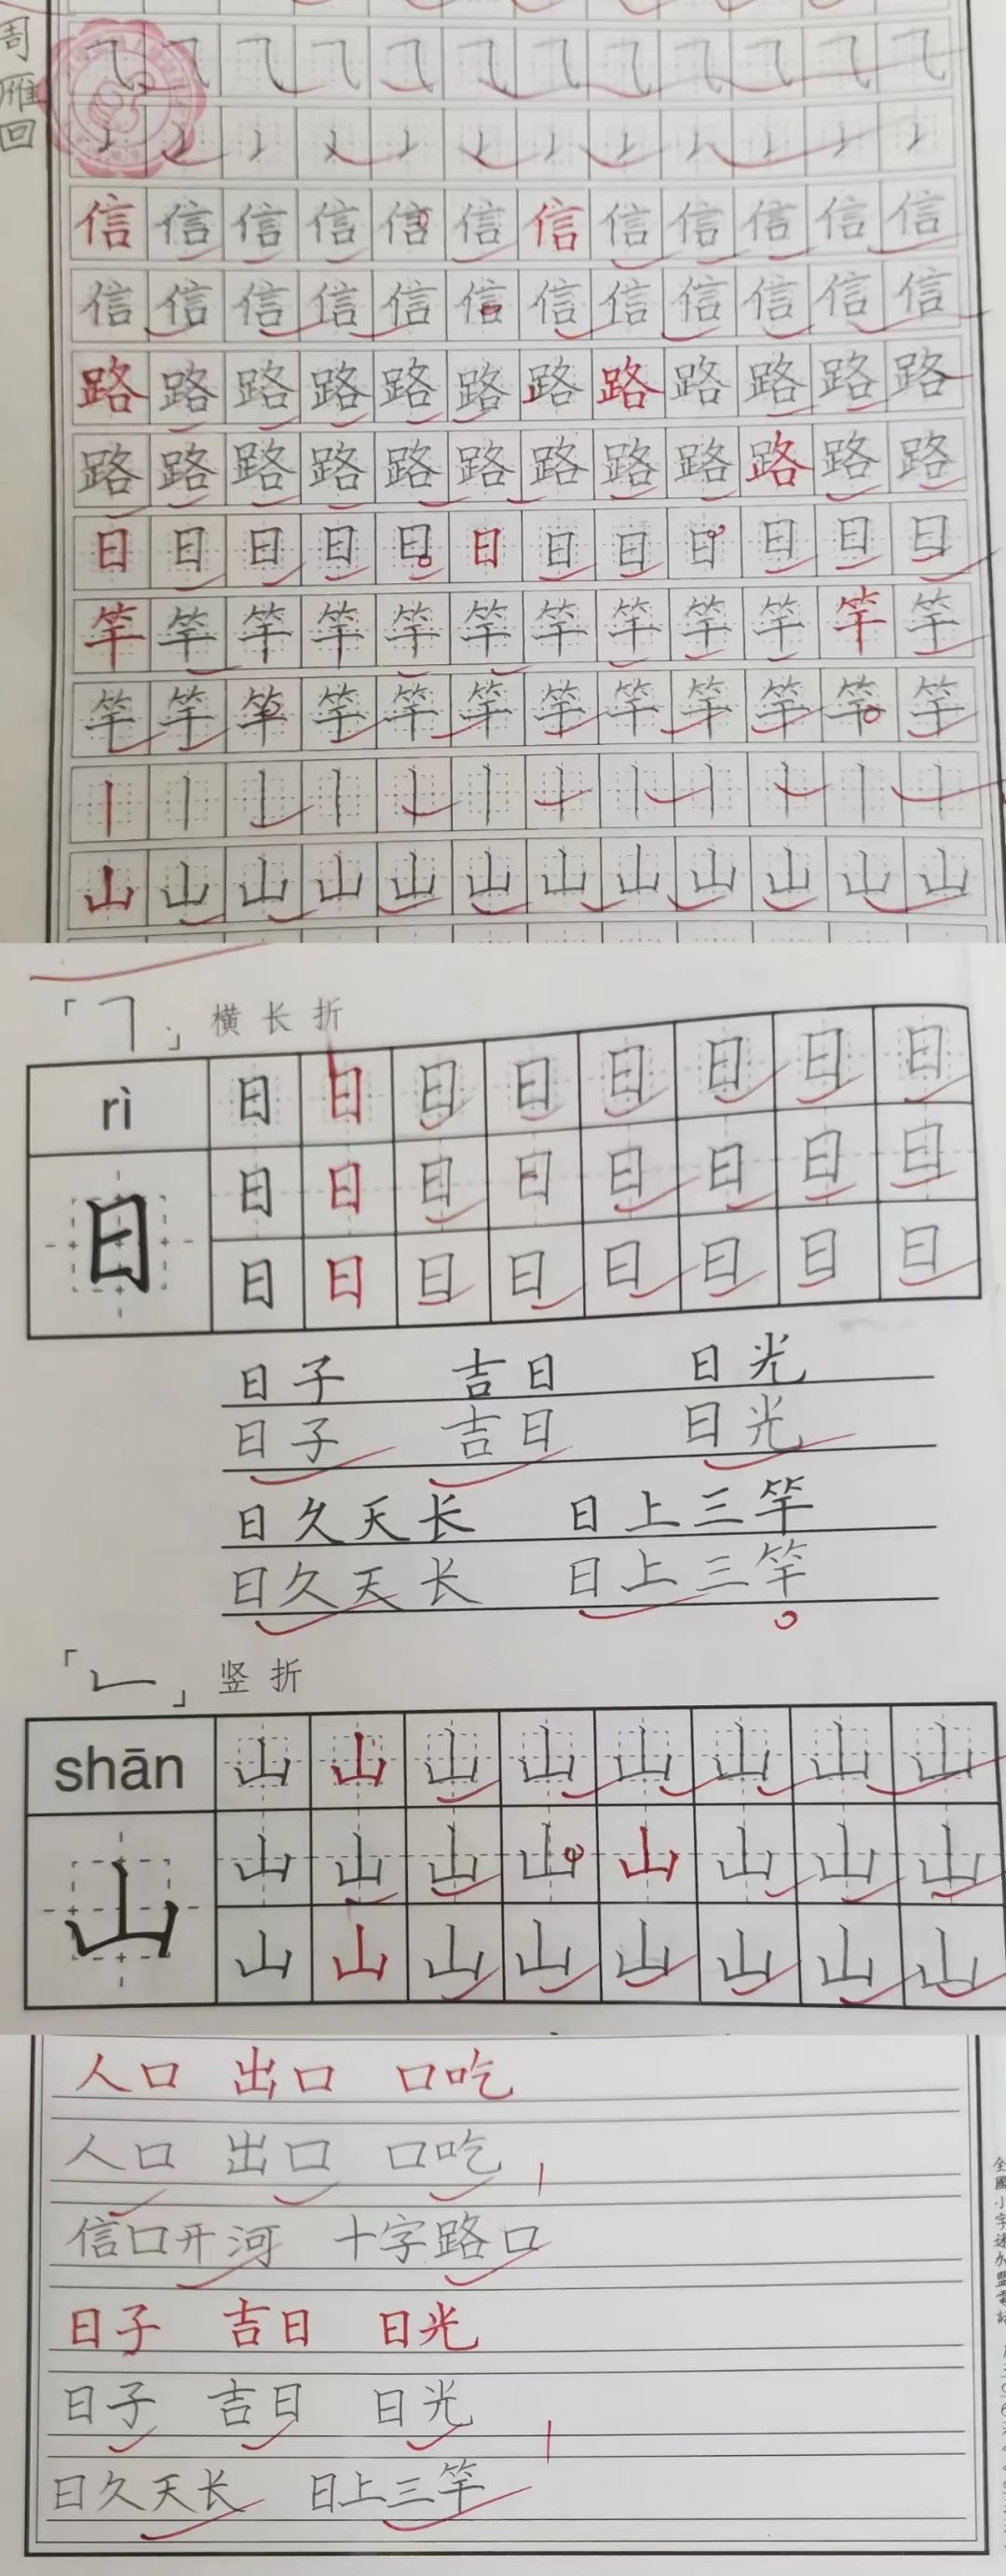 周雁回
信信信信信信信信信信信信
信信信信信信信信信信信信
路路路路路路路路路路路路
路路路路路路路路路路路路
日日日日日日日日日日日日
竿竿竿竿竿竿竿竿竿竿竿竿
竿竿竿竿竿竿竿竿竿竿竿竿
山山山山山山山山山山山山
「㇕」 横长折
rì 日日日日日日日日
日 日日日日日日日日
日日日日日日日日
日子 吉日 日光
日子 吉日 日光
日久天长 日上三竿
日久天长 日上三竿
「𠃊」 竖折
shān 山山山山山山山山
山 山山山山山山山山
山山山山山山山山
人口 出口 口吃
人口 出口 口吃
信口开河 十字路口
日子 吉日 日光
日子 吉日 日光
日久天长 日上三竿